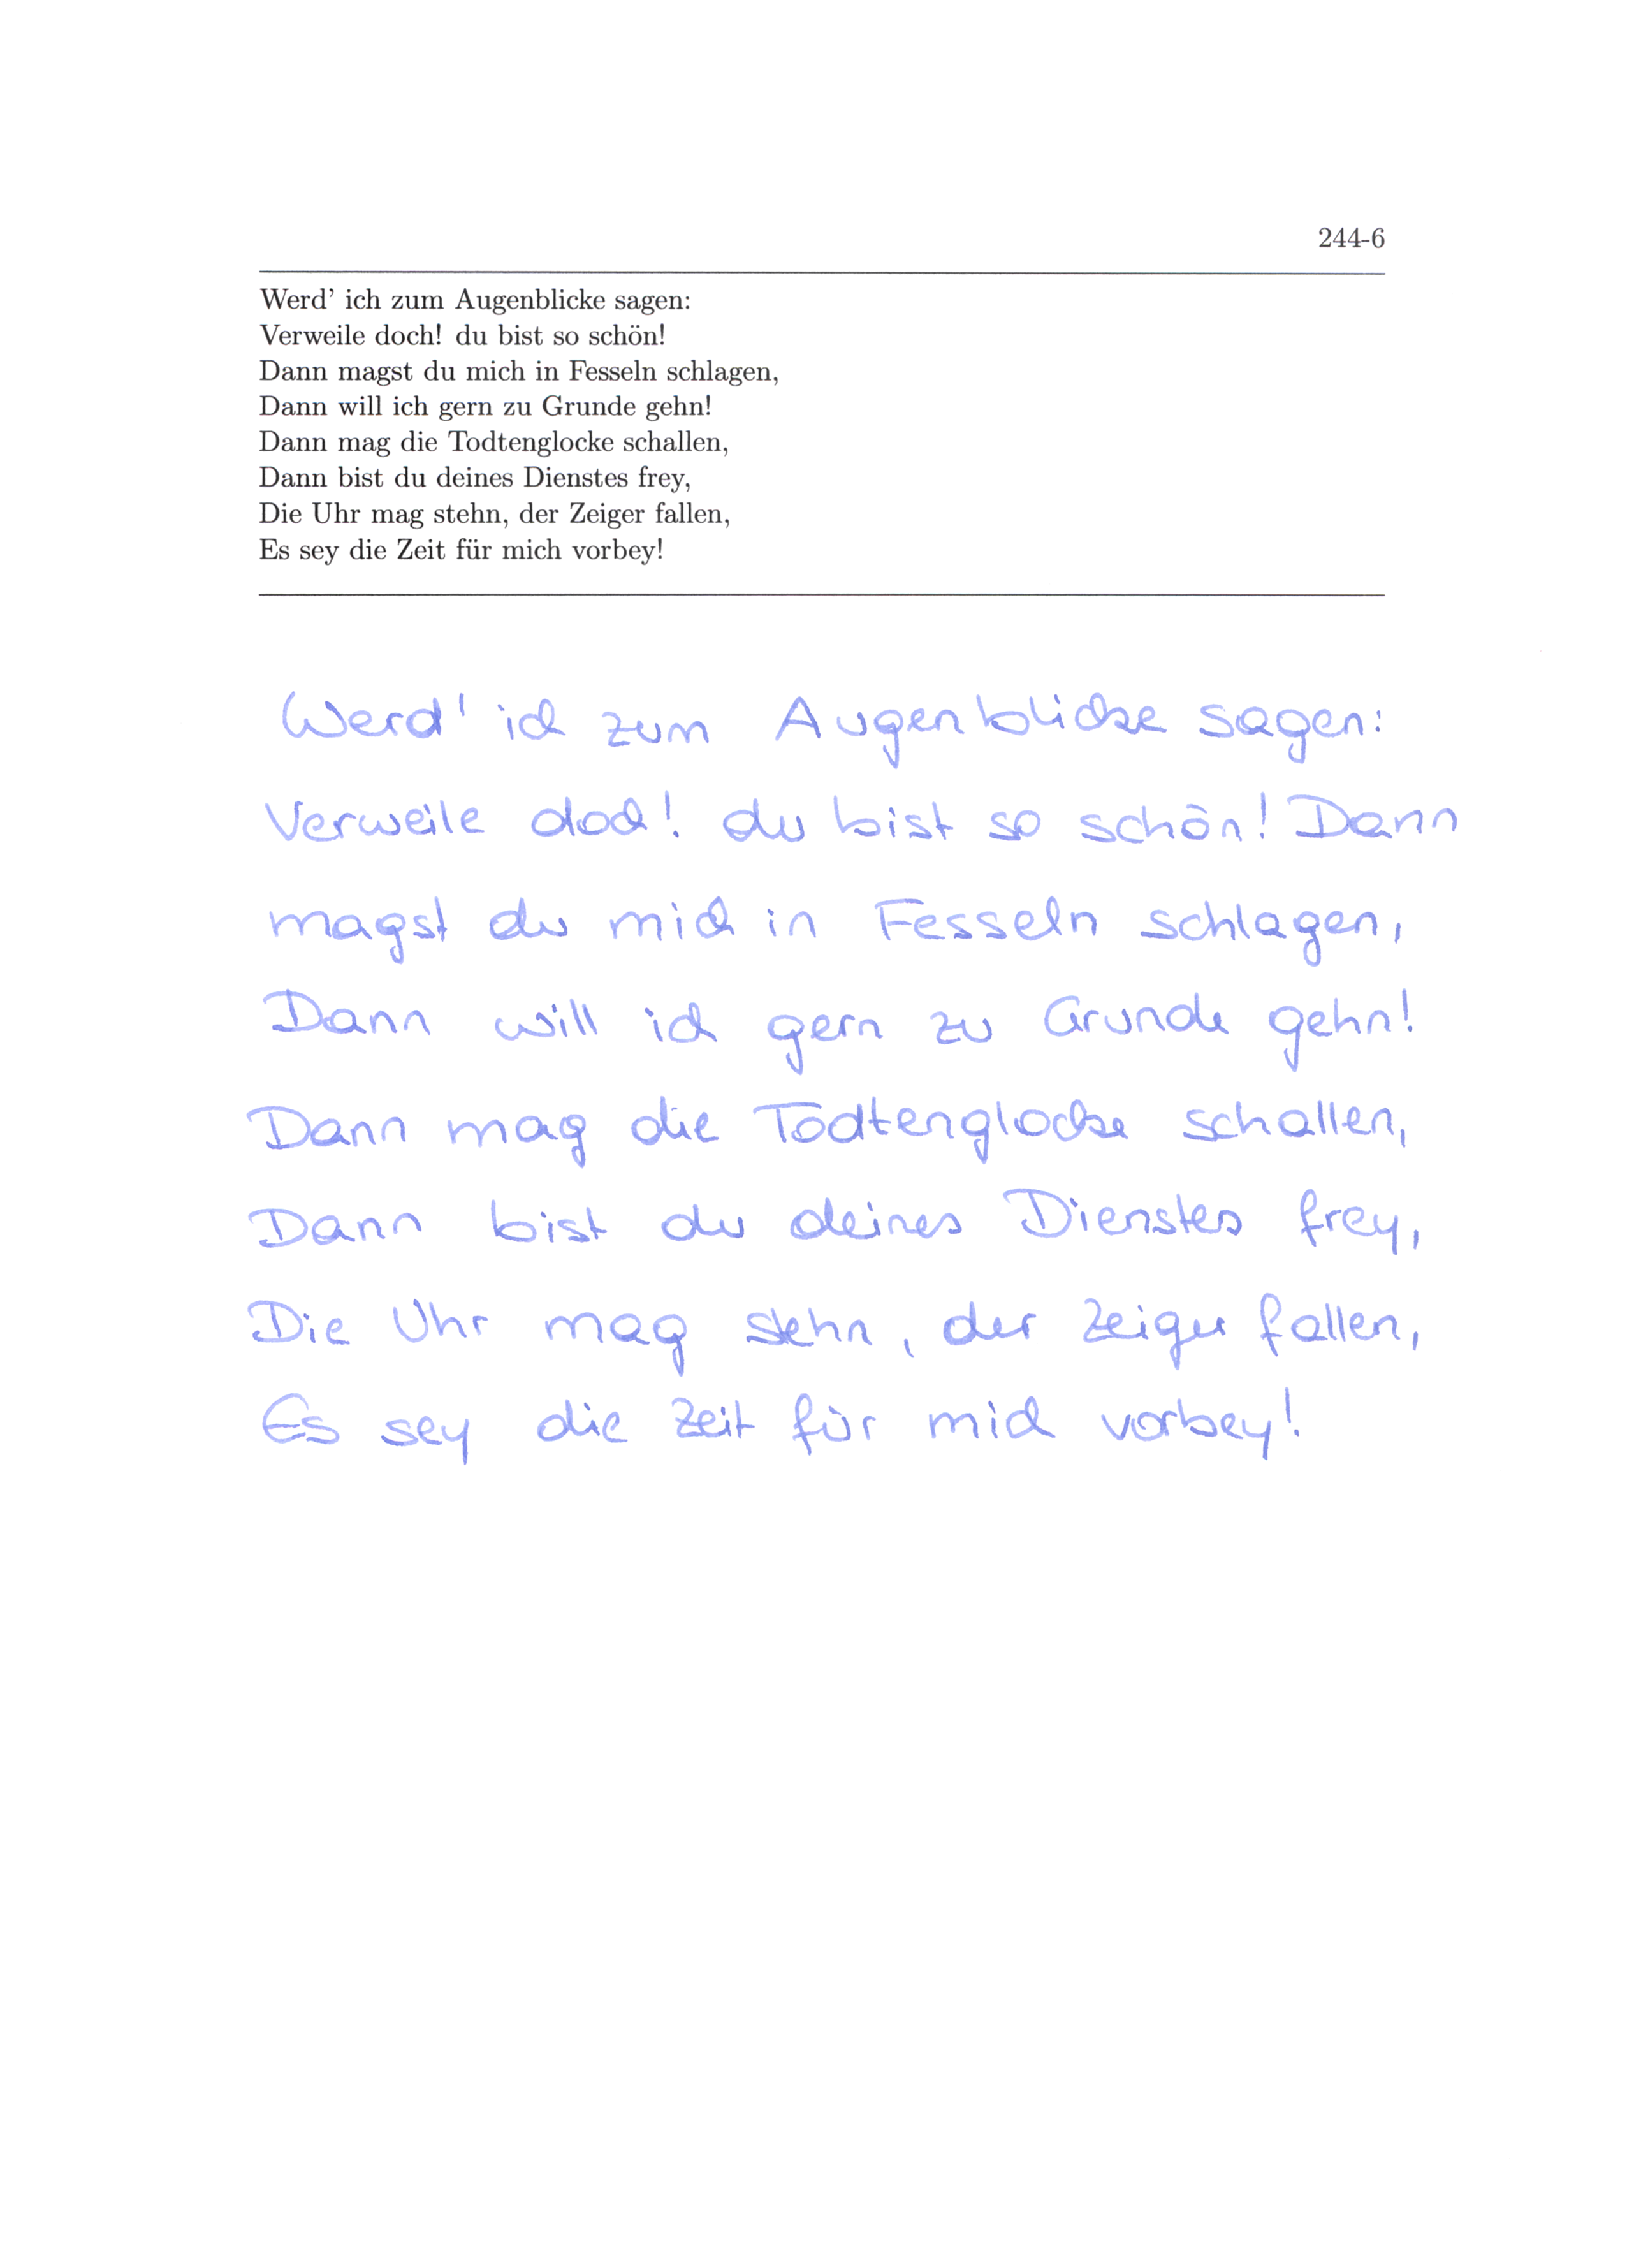 244-6
Werd' ich zum Augenblicke sagen:
Verweile doch! du bist so schön!
Dann magst du mich in Fesseln schlagen,
Dann will ich gern zu Grunde gehn!
Dann mag die Todtenglocke schallen,
Dann bist du deines Dienstes frey,
Die Uhr mag stehn, der Zeiger fallen,
Es sey die Zeit für mich vorbey!
Werd' ich zum Augenblicke sagen:
Verweile doch! du bist so schön! Dann
magst du mich in Fesseln schlagen,
Dann will ich gern zu Grunde gehn!
Dann mag die Todtenglocke schallen,
Dann bist du deines Dienstes frey,
Die Uhr mag stehn, der Zeiger fallen,
Es sey die Zeit für mich vorbey!